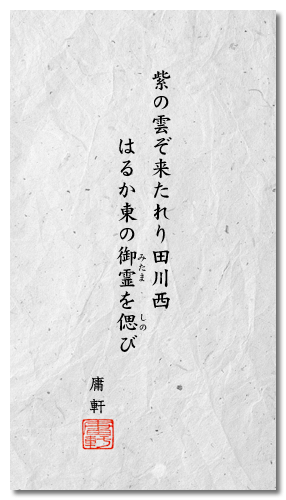 紫の雲ぞ来たれり田川西
はるか東の御霊を偲び
みたま
しの
庸軒
庸軒